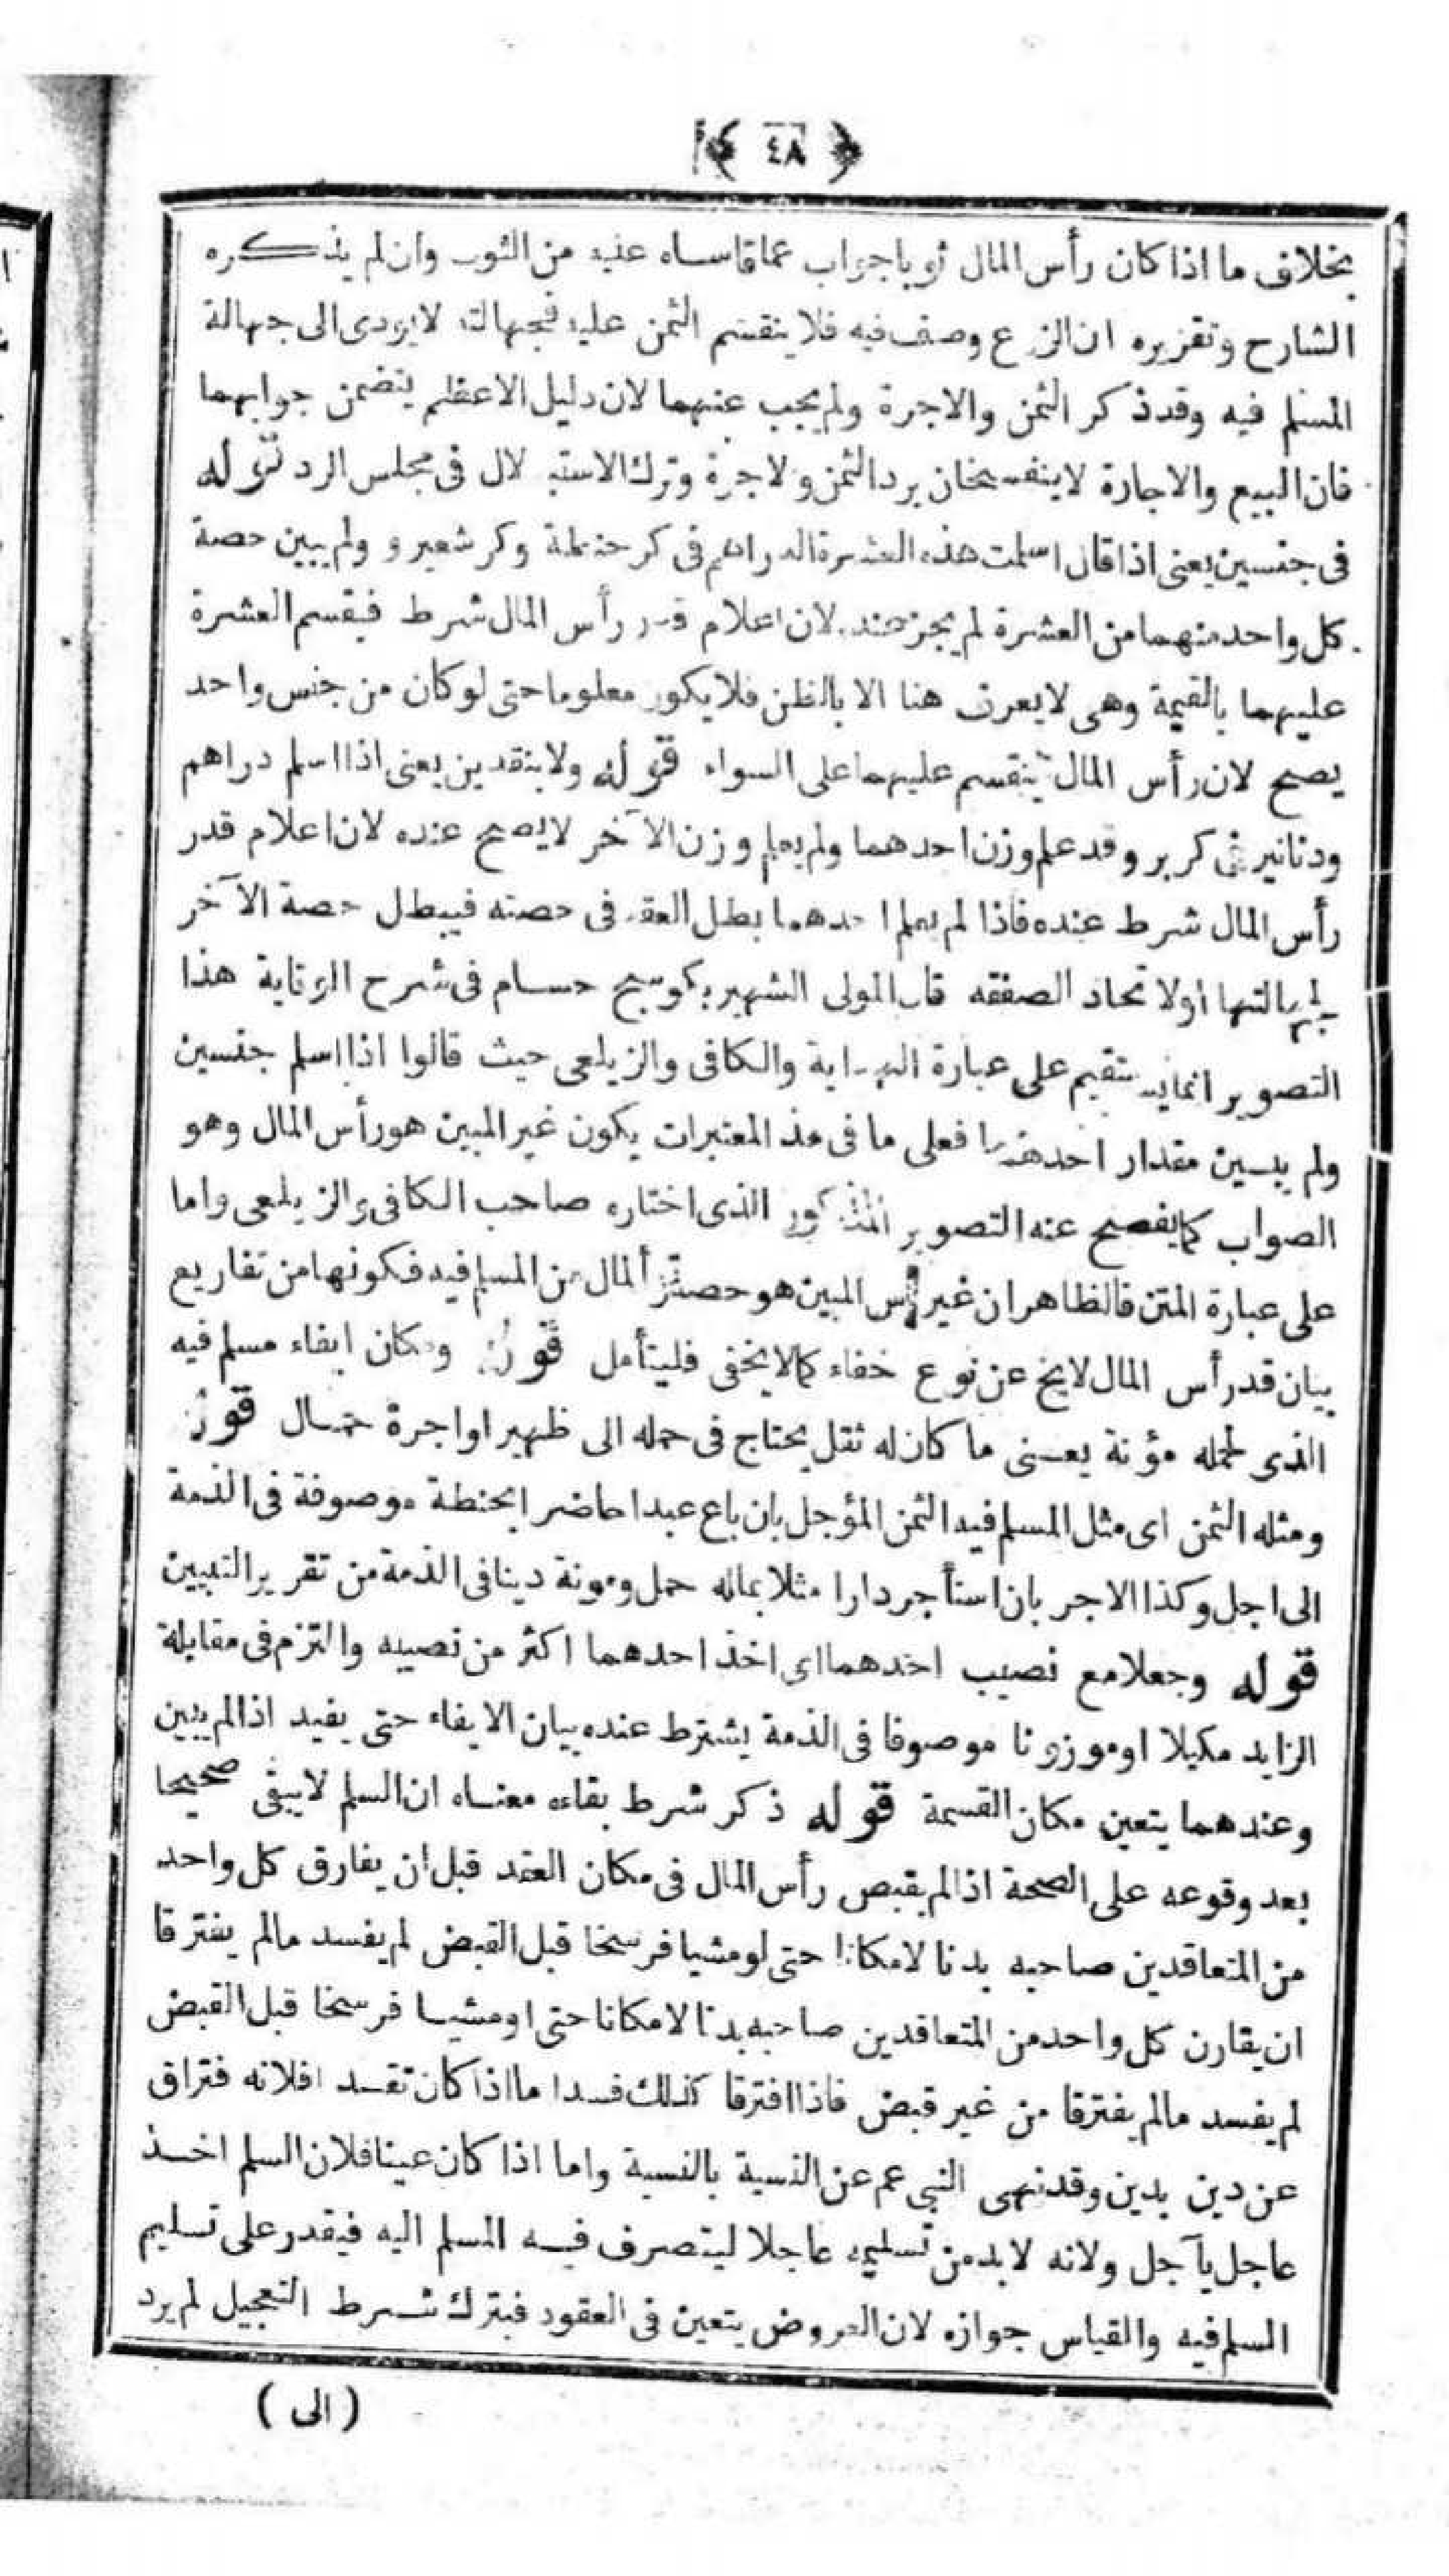 ﴿ ٤٨ ﴾
بخلاف ما اذا كان رأس المال ثوبا جواب عما قاساه عليه من الثوب وان لم يذكره
الشارح وتقريره ان الزرع وصف فيه فلا ينقسم الثمن عليه فجهالته لا يؤدى الى جهالة
المسلم فيه وقد ذكر الثمن والاجرة ولم يجب عنهما لان دليل الاعظم يتضمن جوابهما
فان البيع والاجارة لا ينفسخان برد الثمن ولاجرة وترك الاستبدلال فى مجلس الرد قوله
فى جنسين يعنى اذا قال اسلمت هذه العشرة الدراهم فى كر حنطة وكر شعير و ولم يبين حصة
كل واحد منهما من العشرة لم يجز عنده لان اعلام قدر رأس المال شرط فيقسم العشرة
عليهما بالقيمة وهى لا يعرف هنا الا بالظن فلا يكون معلوما حتى لو كان من جنس واحد
يصح لان رأس المال ينقسم عليهما على السواء قوله ولا بنقدين يعنى اذا اسلم دراهم
ودنانير فى كر بر وقد علم وزن احدهما ولم يعلم وزن الآخر لا يصح عنده لان اعلام قدر
رأس المال شرط عنده فاذا لم يعلم احدهما بطل العقد فى حصته فيبطل حصة الآخر
لجهالتها اولاتحاد الصفقه قال المولى الشهير بكوسج حسام فى شرح الوقاية هذا
التصوير انما يستقيم على عبارة الهداية والكافى والزيلعى حيث قالوا اذا اسلم جنسين
ولم يبين مقدار احدهما فعلى ما فى هذ المعتبرات يكون غير المبين هو رأس المال وهو
الصواب كما يفصح عنه التصوير المذكور الذى اختاره صاحب الكافى والزيلعى واما
على عبارة المتن فالظاهر ان غير المبين هو حصة رأس المال من المسلم فيه فكونها من تفاريع
بيان قدر رأس المال لا يخ عن نوع خفاء كما لا يخفى فليتأمل قوله ومكان ايفاء مسلم فيه
الذى لحمله مؤنة يعنى ما كان له ثقل يحتاج فى حمله الى ظهير او اجرة حمال قوله
ومثله الثمن اى مثل المسلم فيه الثمن المؤجل بان باع عبدا حاضرا بحنطة موصوفة فى الذمة
الى اجل وكذا الاجر بان استأجر دارا مثلا بماله حمل ومونة دينا فى الذمة من تقرير التبيين
قوله وجعلا مع نصيب احدهما اى اخذ احدهما اكثر من نصيبه والتزم فى مقابلة
الزايد مكيلا او موزونا موصوفا فى الذمة يشترط عنده بيان الايفاء حتى يفيد اذا لم يبين
وعندهما يتعين مكان القسمة قوله ذكر شرط بقاءه معناه ان السلم لا يبقى صحيحا
بعد وقوعه على الصحة اذا لم يقبض رأس المال فى مكان العقد قبل ان يفارق كل واحد
من المتعاقدين صاحبه بدنا لا مكانا حتى لو مشيا فرسخا قبل القبض لم يفسد مالم يفترقا
ان يقارن كل واحد من المتعاقدين صاحبه بدنا لا مكانا حتى او مشيا فرسخا قبل القبض
لم يفسد مالم يفترقا من غير قبض فاذا افترقا كذلك فسدا ما اذا كان تقسد افلانه فتراق
عن دين بدين وقد نهى النبى عم عن النسية بالنسية واما اذا كان عينا فلان السلم اخذ
عاجل بآجل ولانه لا بد من تسليمه عاجلا ليتصرف فيه المسلم اليه فيقدر على تسليم
السلم فيه والقياس جوازه لان العروض يتعين فى العقود فبترك شرط التعجيل لم يرد
( الى )